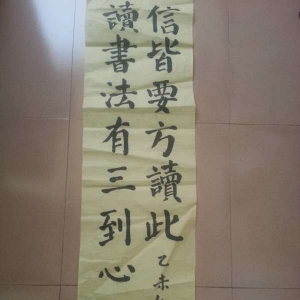 讀書法有三到心
信皆要方讀此
乙未